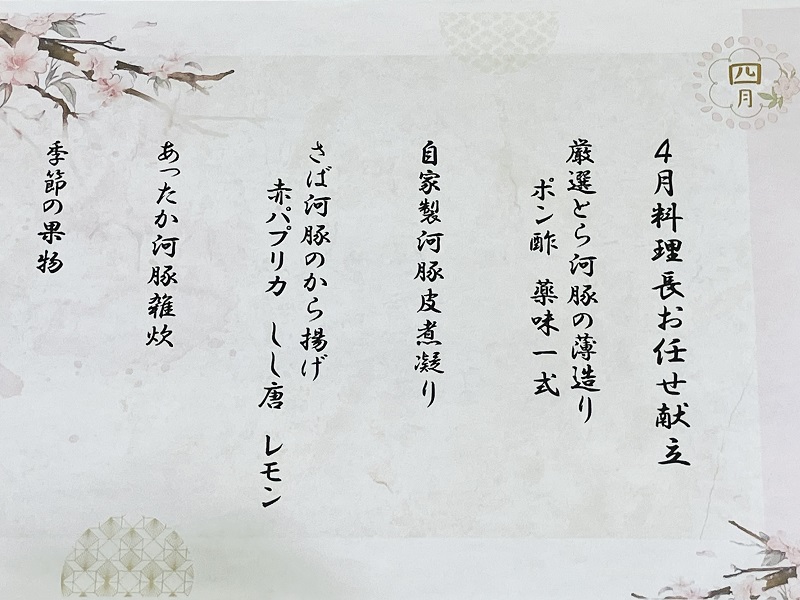 四月
4月料理長お任せ献立
厳選とら河豚の薄造り
ポン酢 薬味一式
自家製河豚皮煮凝り
さば河豚のから揚げ
赤パプリカ しし唐 レモン
あったか河豚雑炊
季節の果物